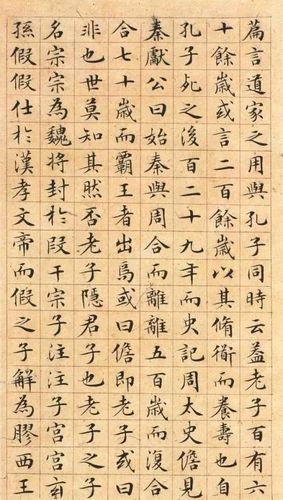 篇言道家之用與孔子同時云蓋老子百有六
十餘歲或言二百餘歲以其脩衜而養壽也自
孔子死之後百二十九年而史記周太史儋見
秦獻公曰始秦與周合而離離五百歲而復合
合七十歲而霸王者出焉或曰儋即老子或曰
非也世莫知其然否老子隱君子也老子之子
名宗宗為魏將封於段干宗子注注子宮宮玄
孫假假仕於漢孝文帝而假之子解為膠西王